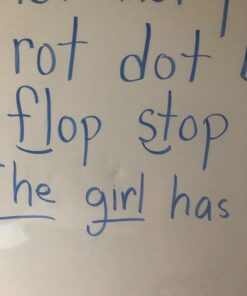 rot dot
flop stop
The girl has